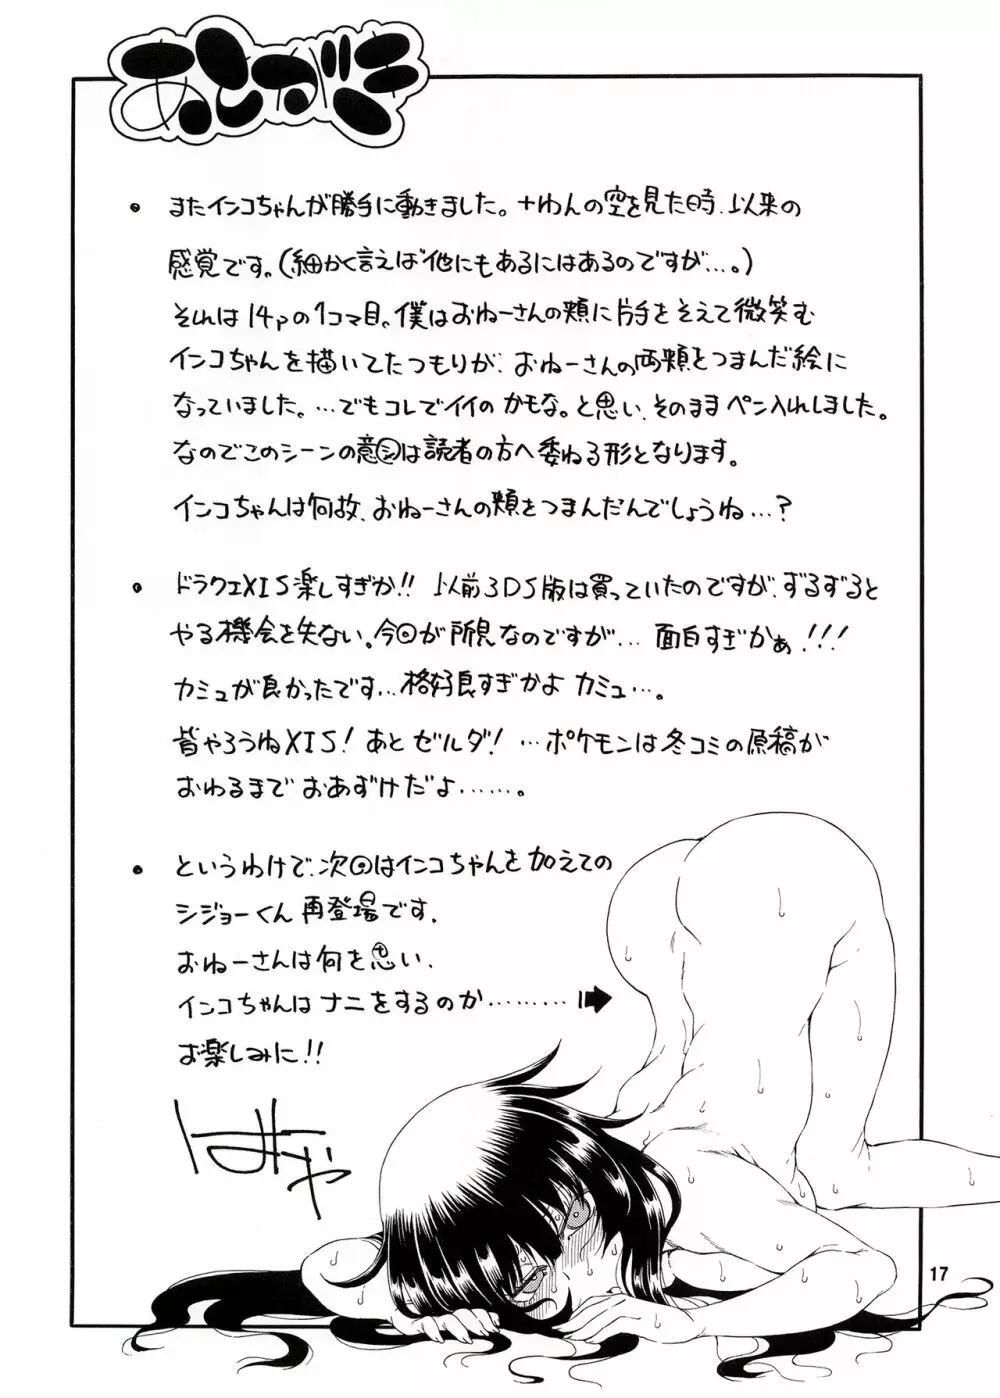 あとがき
・またインコちゃんが勝手に動きました。十わんの空を見た時、以来の
感覚です。(細かく言えば他にもあるにはあるのですが…。)
それは14Pの1コマ目。僕はおねーさんの頬に片手をそえて微笑む
インコちゃんを描いてたつもりが、おねーさんの両頬をつまんだ絵に
なっていました。…でもコレでイイのかもな。と思い、そのままペン入れしました。
なのでこのシーンの意図は読者の方へ委ねる形となります。
インコちゃんは何故、おねーさんの頬をつまんだんでしょうね…?
・ドラクエXIS楽しすぎか!! 以前3DS版は買っていたのですが、ずるずると
やる機会を失ない。今回が所見なのですが… 面白すぎかぁ!!!
カミュが良かったです…格好良すぎかよ カミュ…。
皆やろうねXIS! あと ゼルダ! …ポケモンは冬コミの原稿が
おわるまで おあずけだよ……。
・というわけで、次回はインコちゃんを加えての
シジョーくん 再登場です。
おねーさんは何を思い、
インコちゃんは ナニをするのか………
お楽しみに!!
はみゃ
17